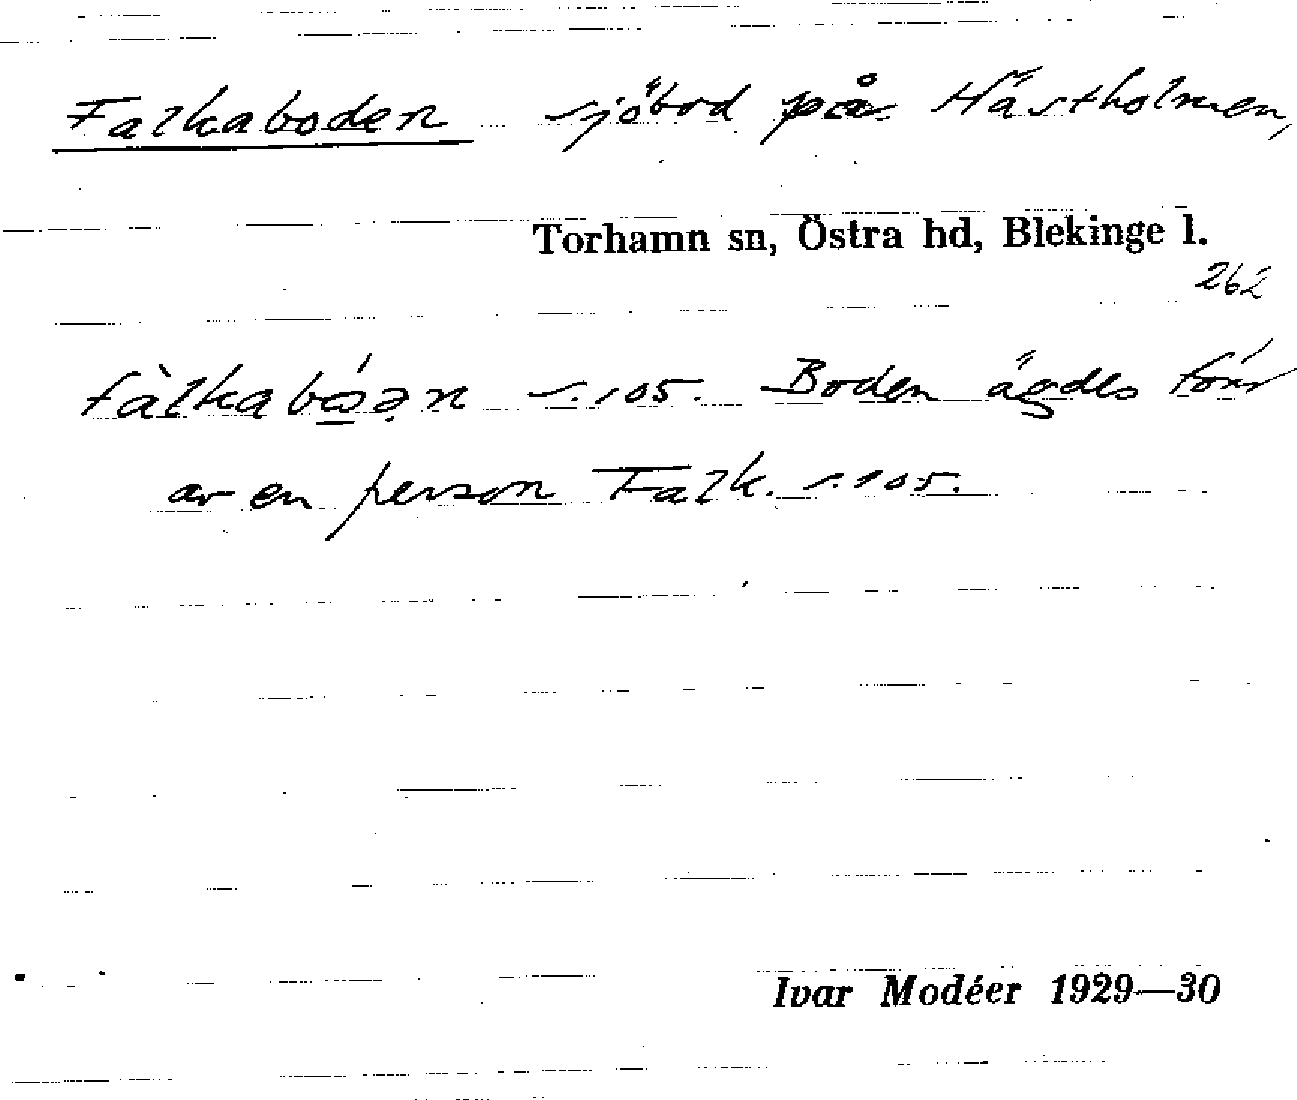 Falkaboden sjöbod på Hästholmen,
Torhamn sn, Östra hd, Blekinge l.
262
s. 105. Boden ägdes förr
av en person Falk. s. 105.
Ivar Modéer 1929—30